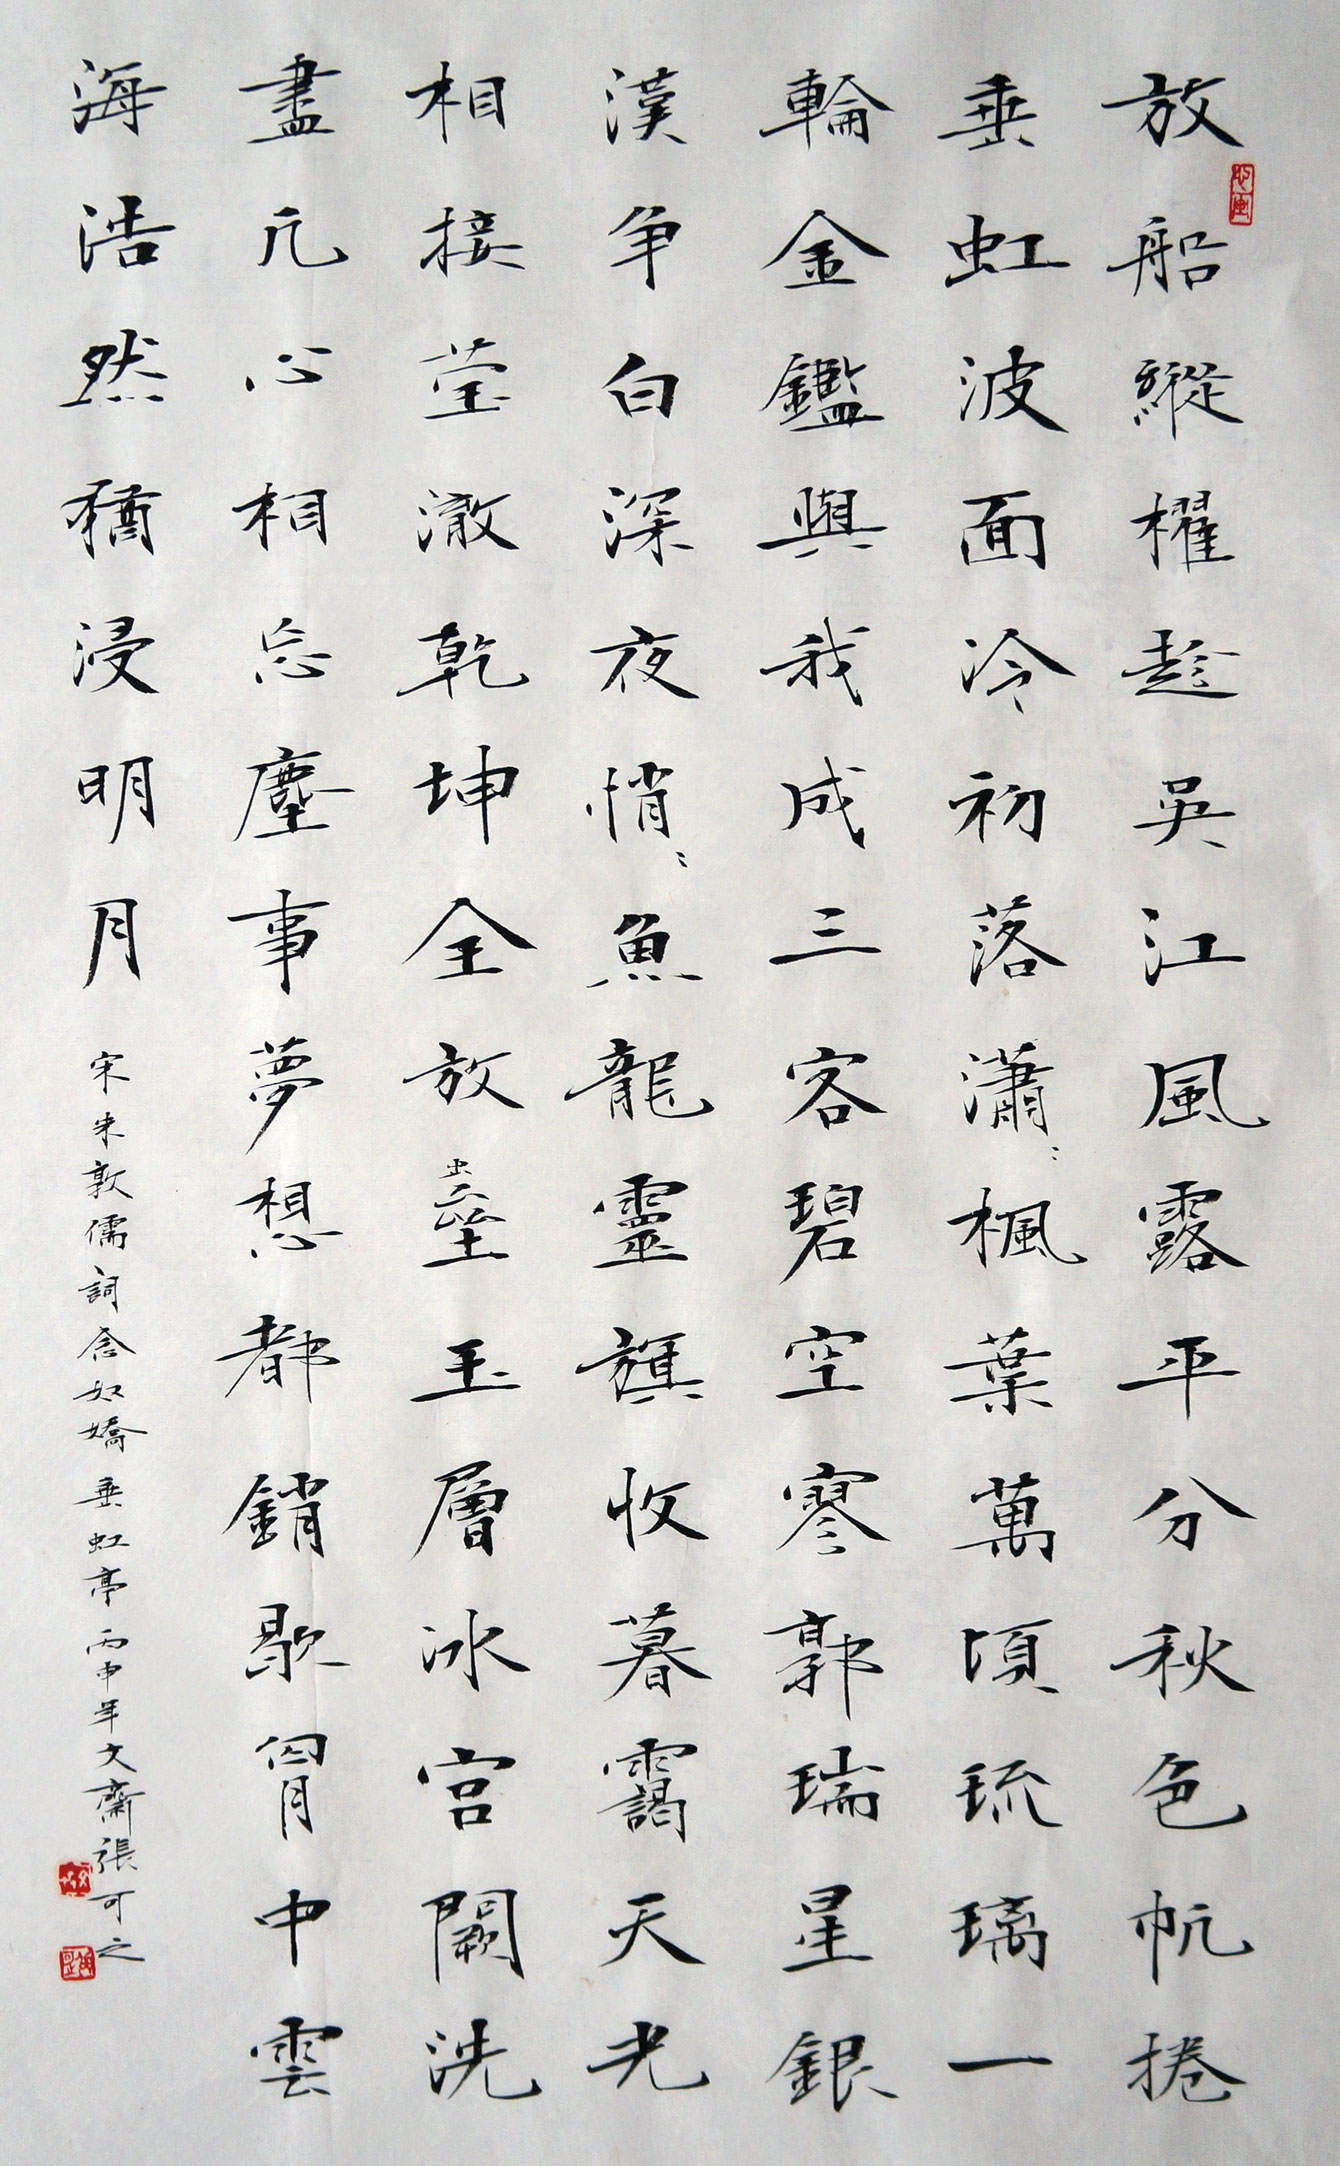 放船縱櫂趁吳江風露平分秋色帆捲
垂虹波面冷初落瀟〻楓葉萬頃琉璃一
輪金鑑與我成三客碧空寥郭瑞星銀
漢爭白深夜悄〻魚龍靈旗收暮靄天光
相接瑩澈乾坤全放出疊玉層冰宮闕洗
盡凡心相忘塵事夢想都銷歇胷中雲
海浩然猶浸明月
宋朱敦儒詞念奴嬌垂虹亭丙申年文齋張可之